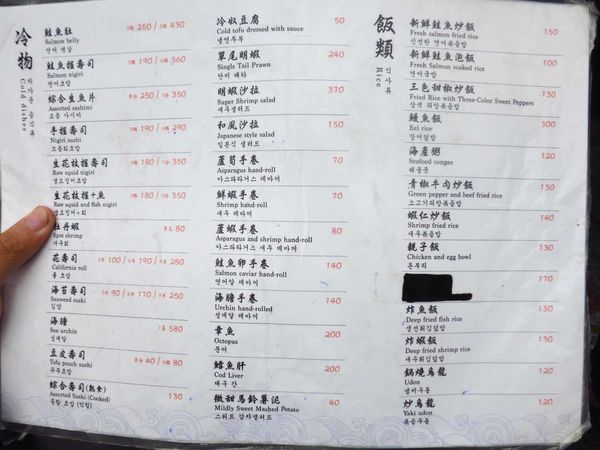 冷物
차가운 음식류
Cold dishes
鮭魚肚 250 / 430
Salmon belly
연어 뱃살
鮭魚握壽司 190 / 360
Salmon nigiri
연어초밥
綜合生魚片 250 / 350
Assorted sashimi
모듬 사시미
手握壽司 190 / 290
Nigiri sushi
모듬회초밥
生花枝握壽司 180 / 350
Raw squid nigiri
생오징어초밥
生花枝握+魚 180 / 350
Raw squid and fish nigiri
생오징어+회
牡丹蝦 80
Spot shrimp
새우회
花壽司 100 / 190 / 280
California roll
롤 초밥
海苔壽司 90 / 170 / 250
Seaweed sushi
김밥
海膽 580
Sea urchin
성게알
豆皮壽司 40 / 80
Tofu pouch sushi
유부초밥
綜合壽司(熟食) 130
Assorted Sushi (Cooked)
모듬 초밥 (익힘)
冷奴豆腐 50
Cold tofu dressed with sauce
냉연두부
單尾明蝦 240
Single Tail Prawn
단미 대하
明蝦沙拉 370
Super Shrimp salad
새우샐러드
和風沙拉 150
Japanese style salad
일본식 샐러드
蘆筍手卷 70
Asparagus hand-roll
아스파라거스 데마끼
鮮蝦手卷 70
Shrimp hand-roll
새우 데마끼
蘆蝦手卷 80
Asparagus and shrimp hand-roll
아스파라거스 새우 데마끼
鮭魚卵手卷 140
Salmon caviar hand-roll
연어알 데마끼
海膽手卷 140
Urchin hand-rolled
성게알 데마끼
章魚 200
Octopus
문어
鱈魚肝 200
Cod Liver
대구 간
微甜馬鈴薯泥 40
Mildly Sweet Mashed Potato
스위트 감자샐러드
飯類
식사류
Rice
新鮮鮭魚炒飯 150
Fresh salmon fried rice
신선한 연어볶음밥
新鮮鮭魚泡飯 100
Fresh Salmon soaked rice
연어국밥
三色甜椒炒飯 100
Fried Rice with Three-Color Sweet Peppers
삼색 피망볶음밥
鰻魚飯 300
Eel rice
장어덮밥
海產粥 120
Seafood congee
해물죽
青椒牛肉炒飯 130
Green pepper and beef fried rice
소고기피망볶음밥
蝦仁炒飯 140
Shrimp fried rice
새우볶음밥
親子飯 130
Chicken and egg bowl
돈부리
170
炸魚飯 130
Deep fried fish rice
생선튀김덮밥
炸蝦飯 130
Deep fried shrimp rice
새우튀김덮밥
鍋燒烏龍 120
Udon
냄비우동
炒烏龍 120
Yaki udon
볶음우동